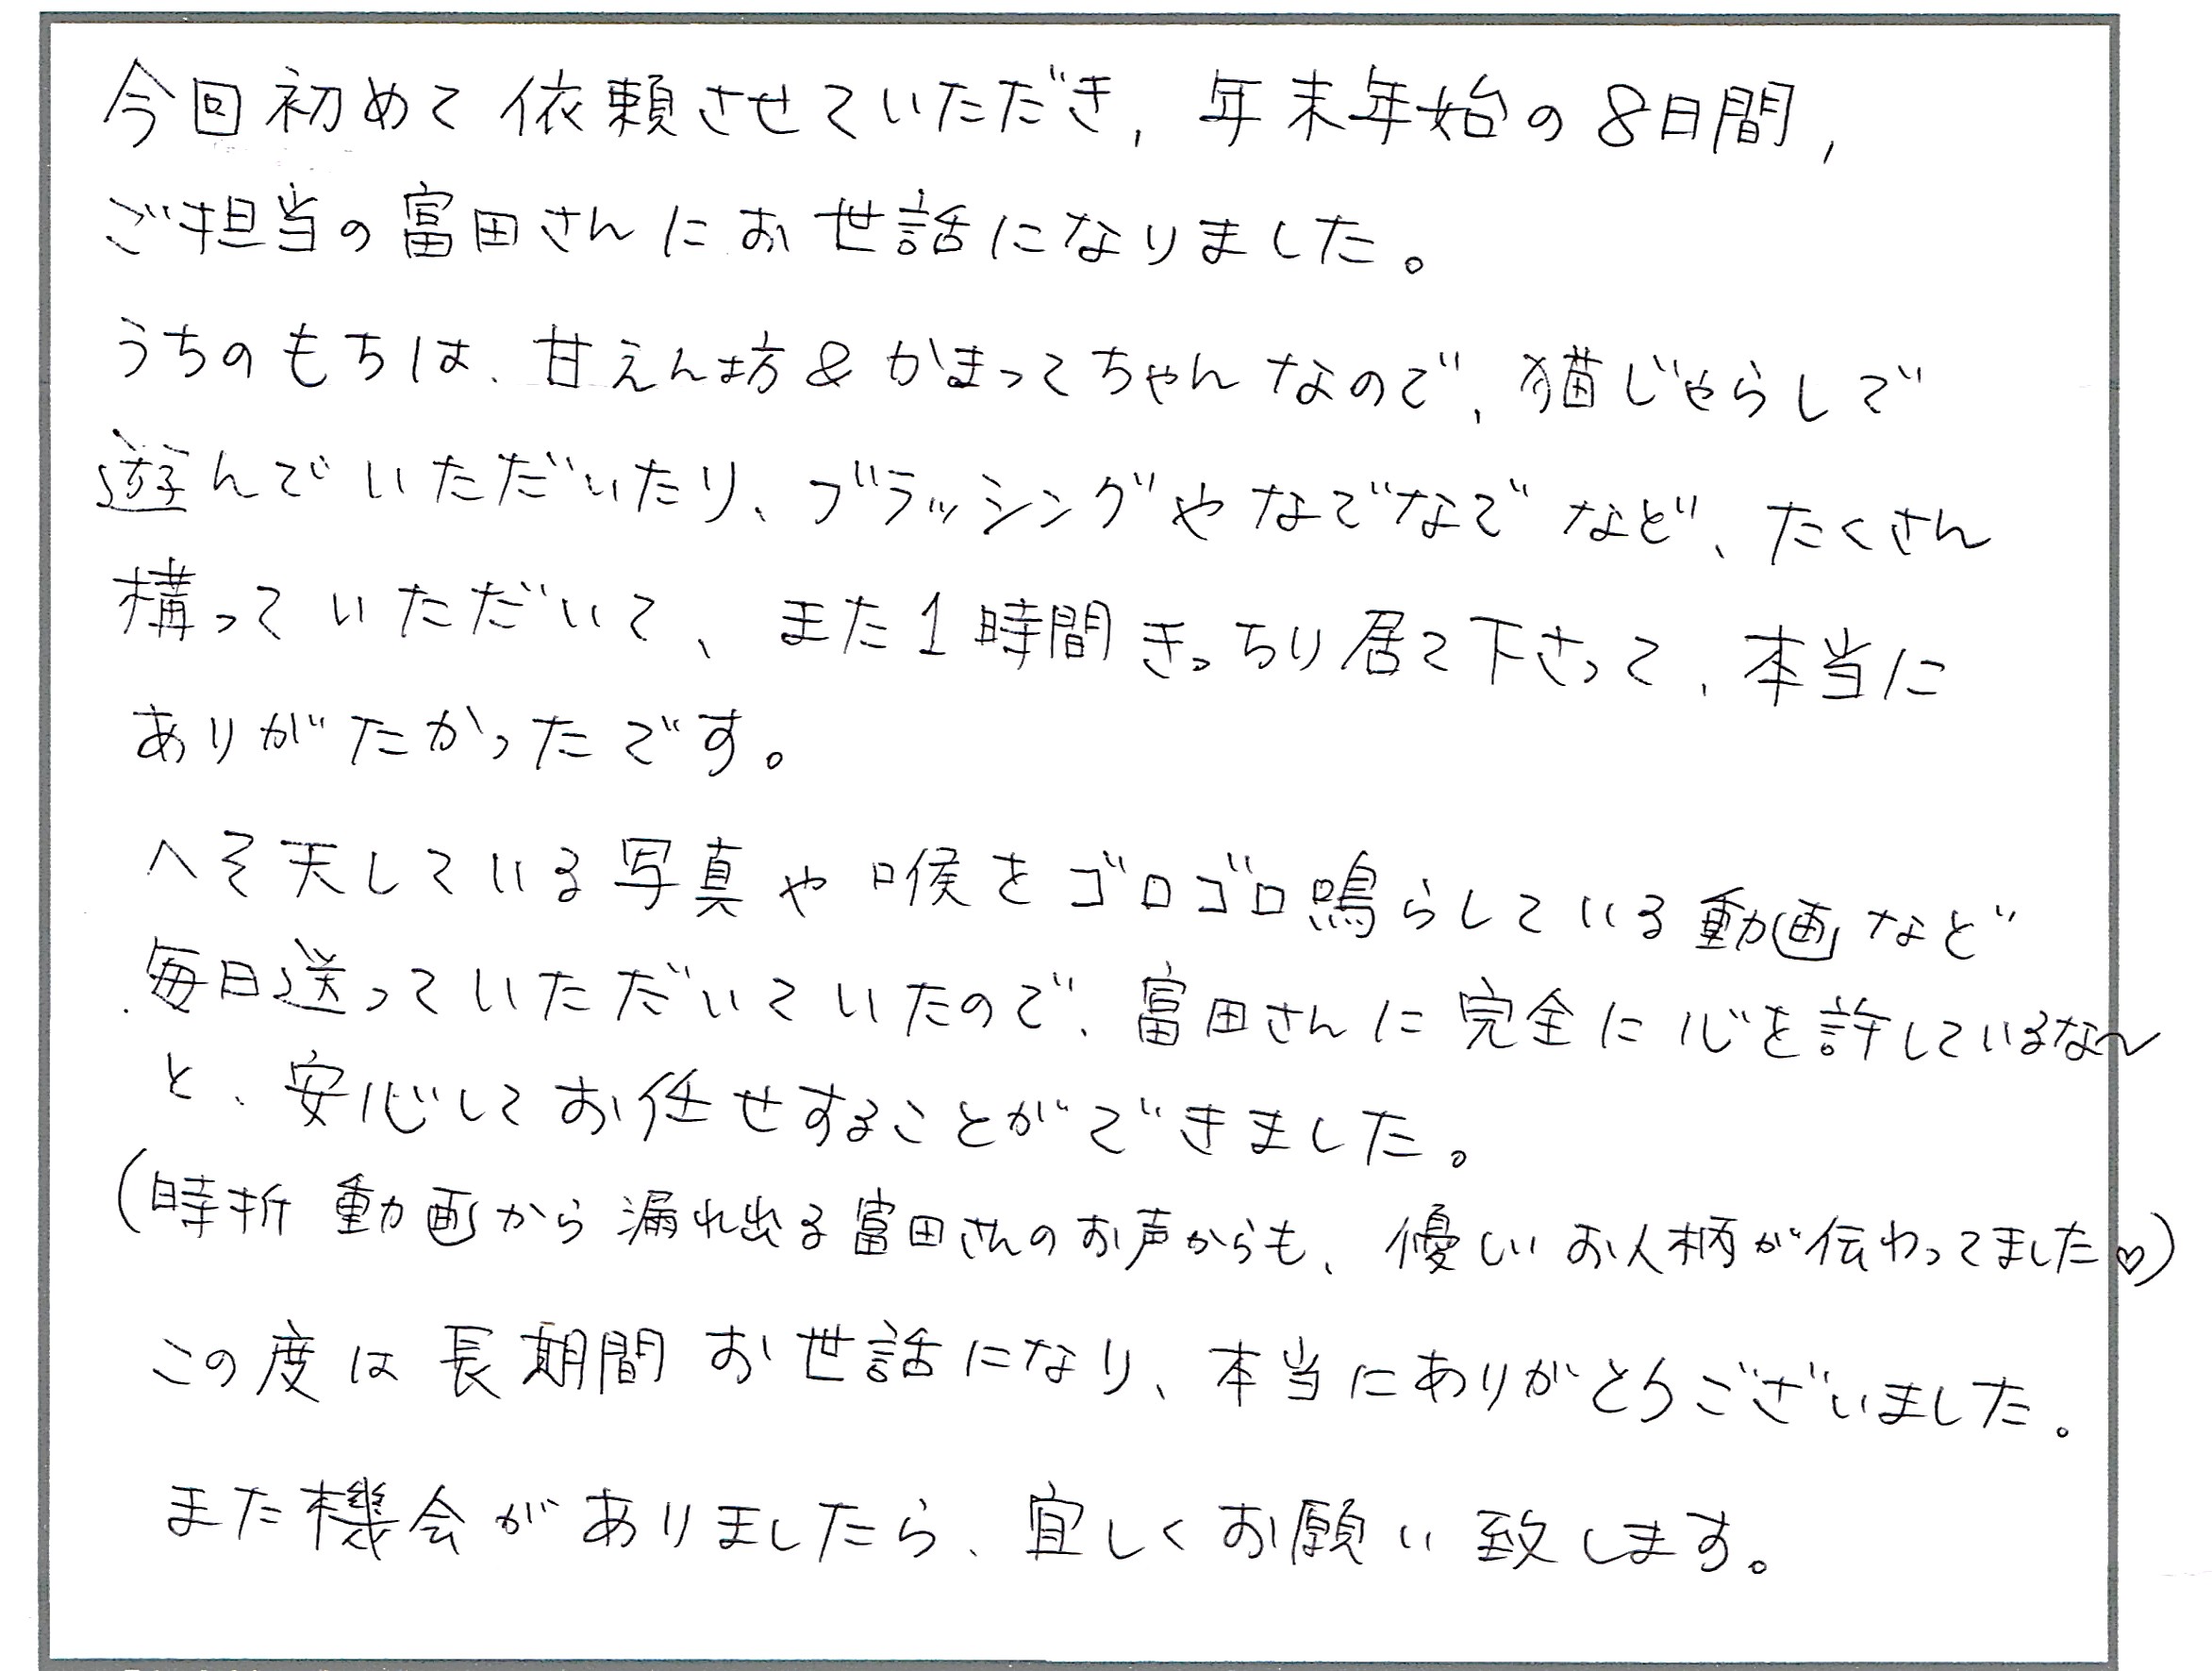 今回初めて依頼させていただき，年末年始の8日間，
ご担当の富田さんにお世話になりました。
うちのもちは、甘えん坊&かまってちゃんなので、猫じゃらしで
遊んでいただいたり、ブラッシングやなでなでなど、たくさん
構っていただいて、また1時間きっちり居て下さって、本当に
ありがたかったです。
へそ天している写真や喉をゴロゴロ鳴らしている動画など
毎日送っていただいていたので、富田さんに完全に心を許しているな〜
と、安心してお任せすることができました。
(時折動画から漏れ出る富田さんのお声からも、優しいお人柄が伝わってました♡)
この度は長期間お世話になり、本当にありがとうございました。
また機会がありましたら、宜しくお願い致します。